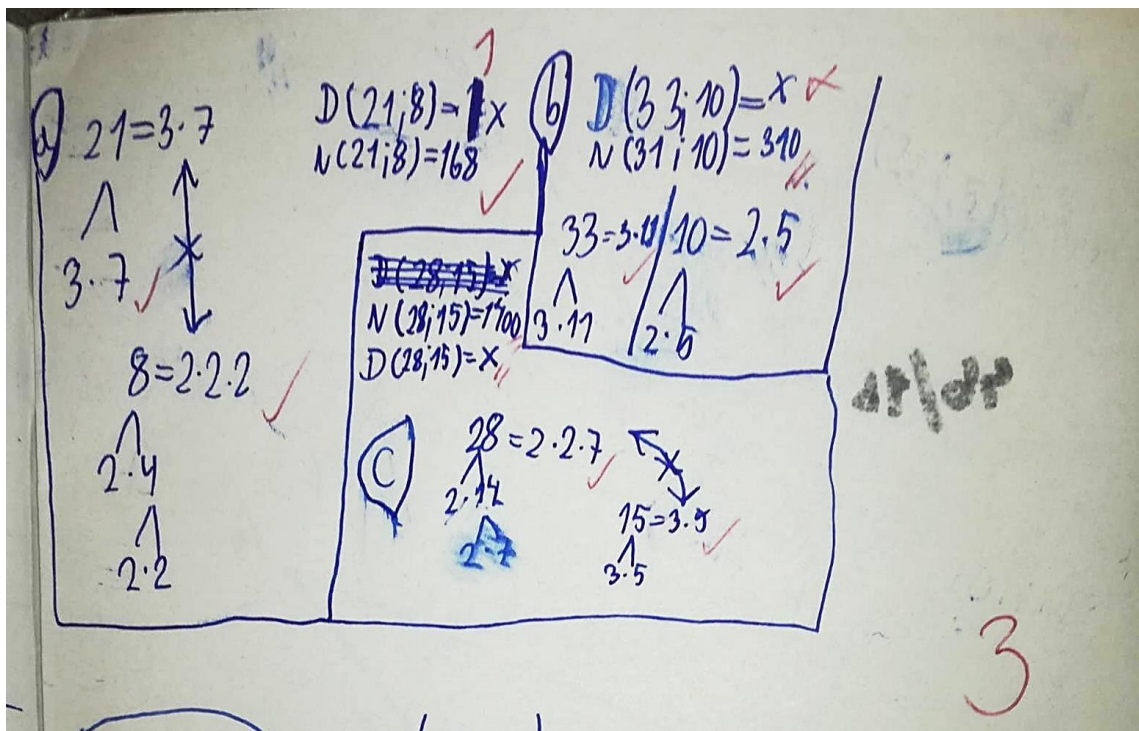 a) 21=3·7
3·7
8=2·2·2
2·4
2·2
1
D(21;8)= x
N(21;8)=168
b) D(33;10)=x
N(31;10)=310
33=3·11
3·11
10=2·5
2·5
D(28;15)=x
N(28;15)=1400
D(28;15)=x
C
28=2·2·7
2·14
2·7
15=3·5
3·5
3